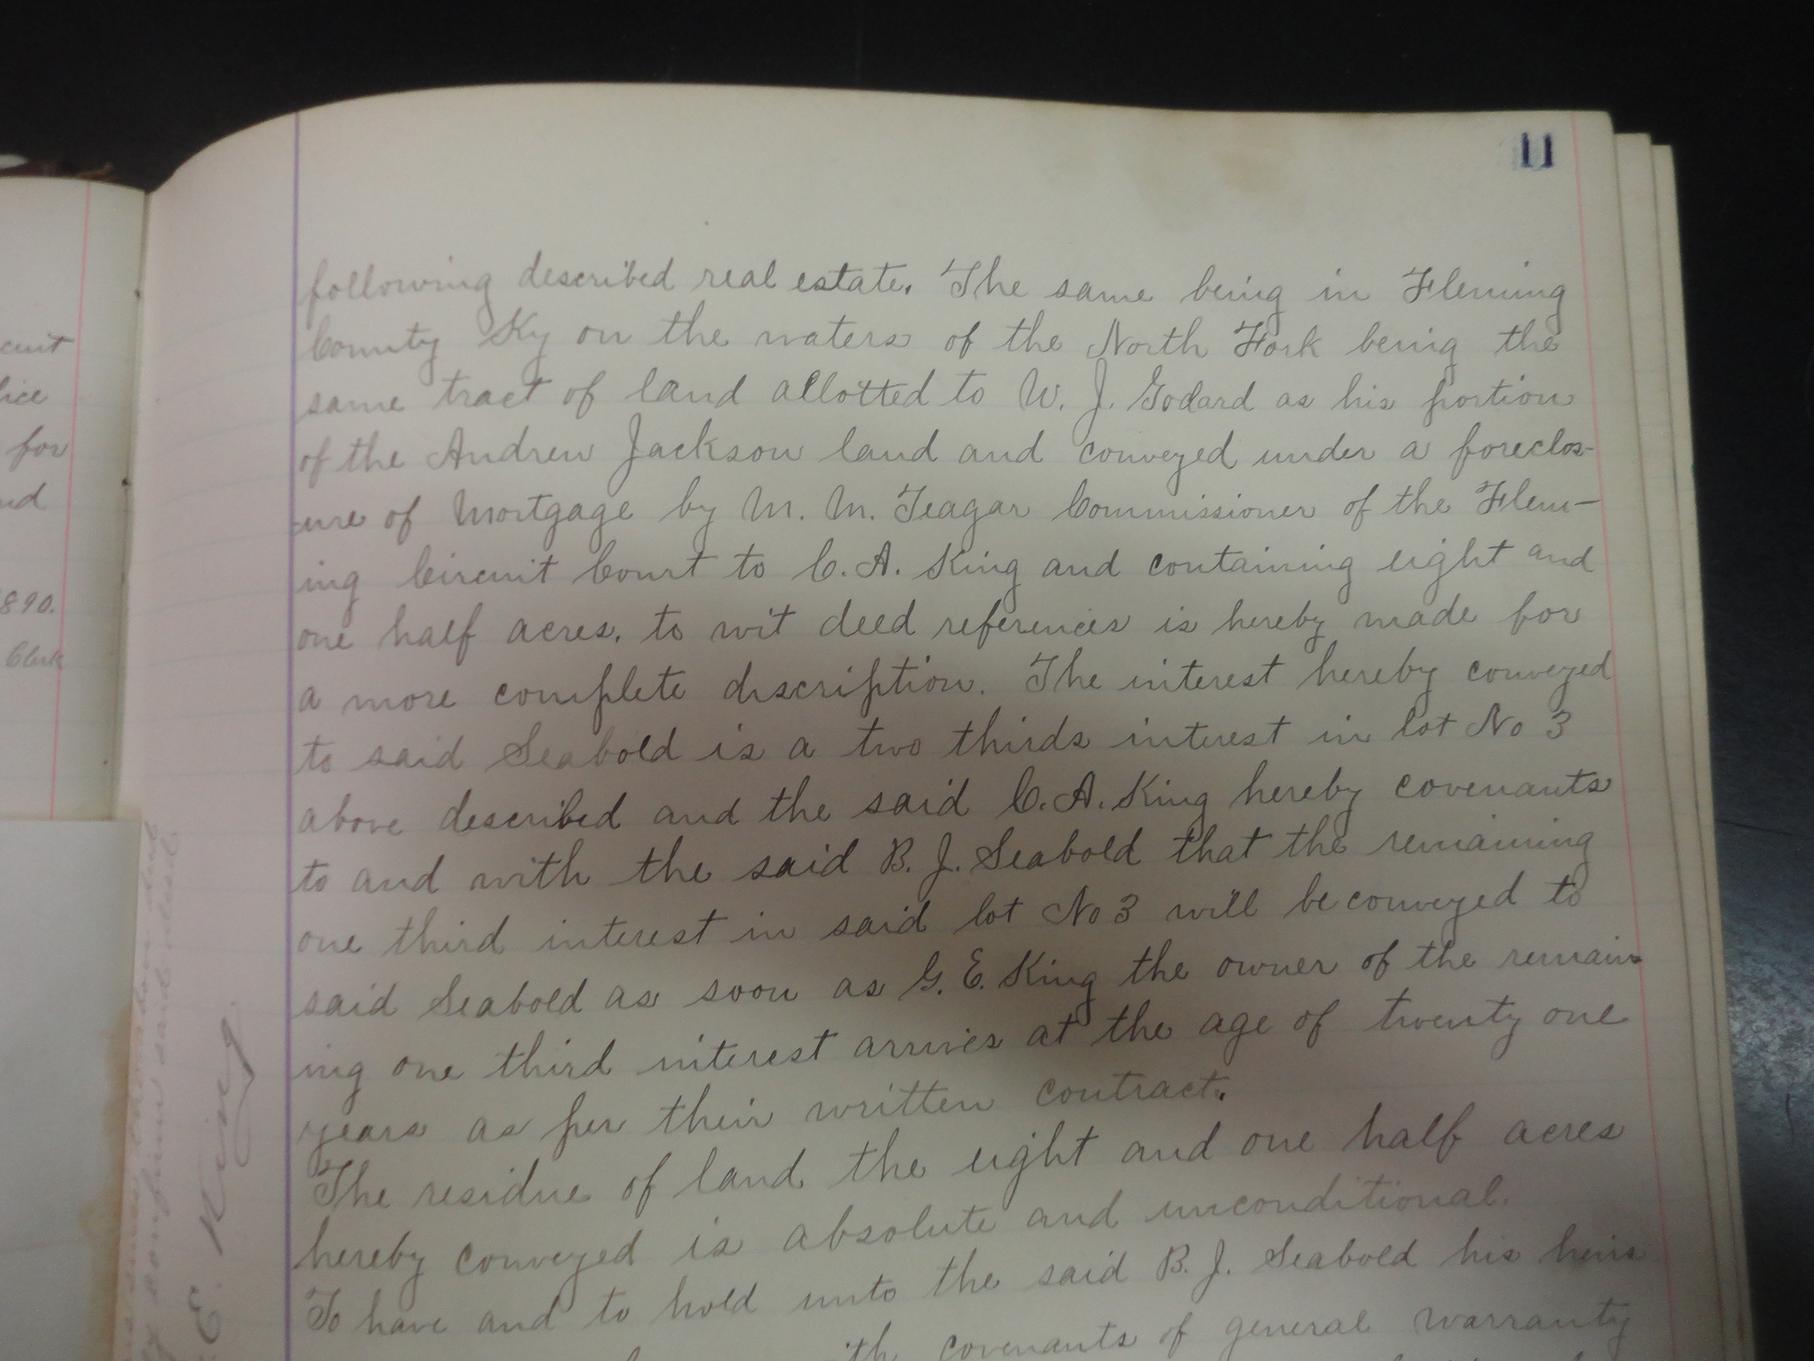 11
following described real estate. The same being in Fleming
County Ky on the waters of the North Fork being the
same tract of land allotted to W. J. Godard as his portion
of the Andrew Jackson land and conveyed under a foreclos-
ure of Mortgage by M. M. Teagar Commissioner of the Flem-
ing Circuit Court to C. A. King and containing eight and
one half acres. to wit deed references is hereby made for
a more complete discription. The interest hereby conveyed
to said Seabold is a two thirds interest in lot No 3
above described and the said C. A. King hereby covenants
to and with the said B. J. Seabold that the remaining
one third interest in said lot No 3 will be conveyed to
said Seabold as soon as G. E. King the owner of the remain-
ing one third interest arrives at the age of twenty one
years as per their written contract.
The residue of land the eight and one half acres
hereby conveyed is absolute and unconditional.
To have and to hold unto the said B. J. Seabold his heirs
covenants of general warranty
for
890.
Clerk
E. King